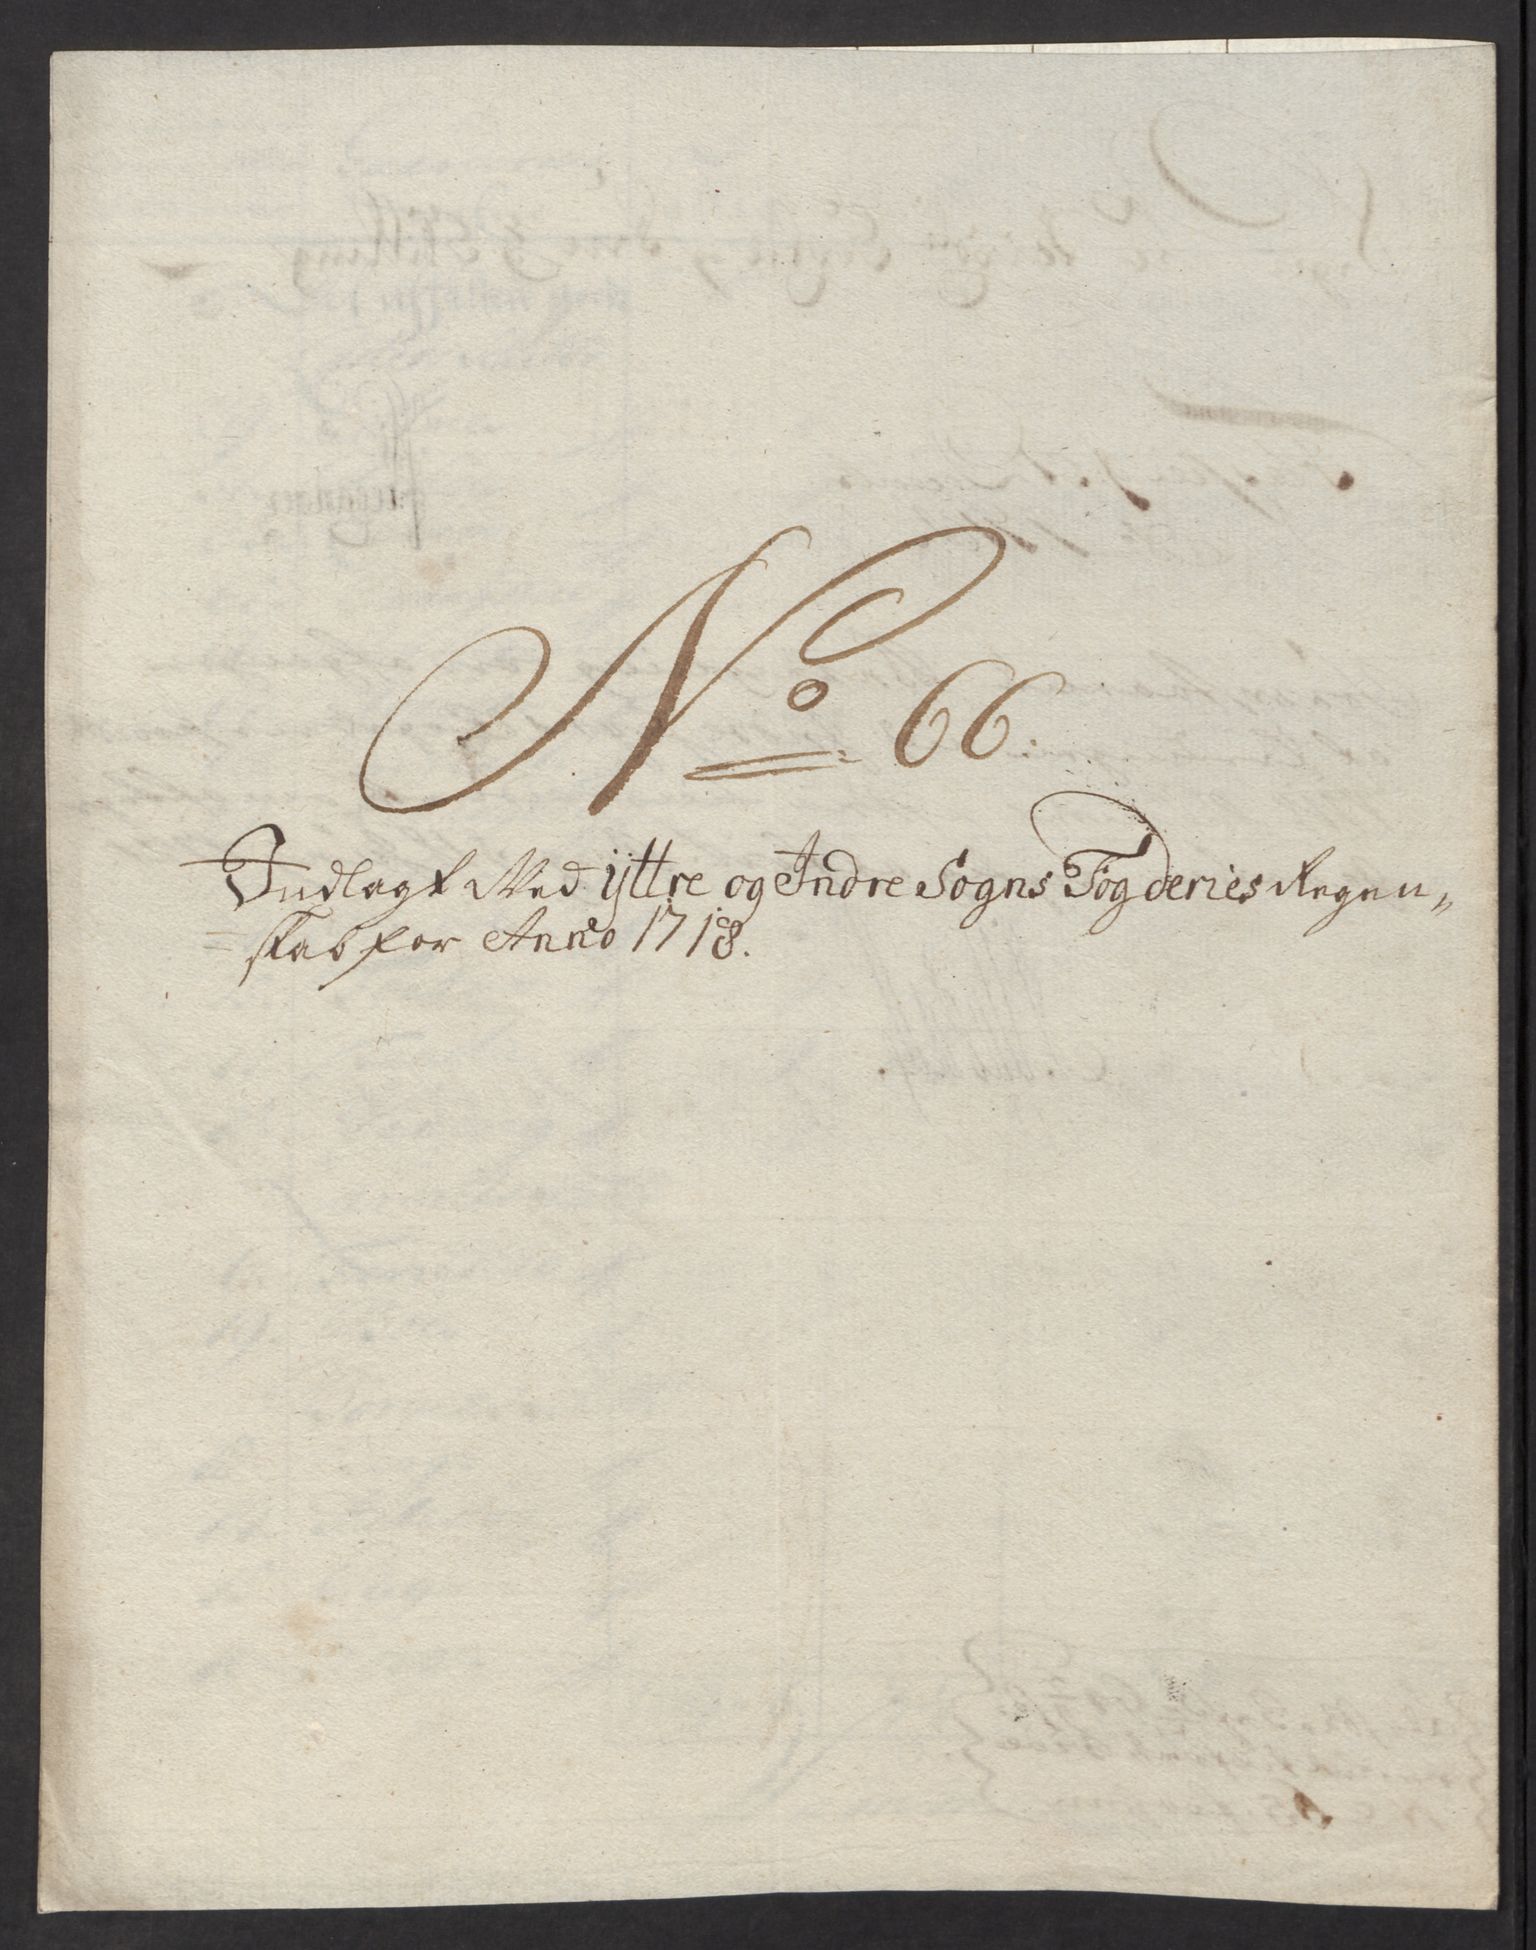 No 66.
Indlagt Ved ijttre og Indre Sogns Fogderies Regen„
=skab for Anno 1718.